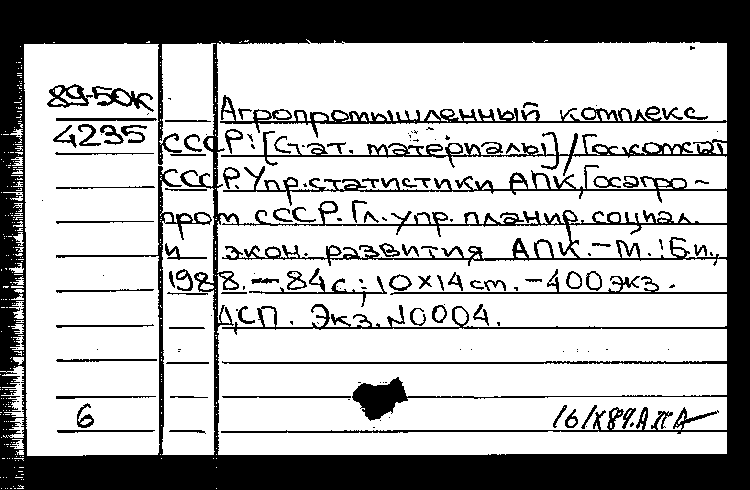 89-50к
Агропромышленный комплекс
4235
СССР: [Стат. материалы] / Госкомстат
СССР. Упр. статистики АПК, Госагро-
пром СССР. Гл. упр. планир. социал.
и экон. развития АПК. - М.: Б.и.,
1988. - 84 с.; 10×14 см. - 400 экз.
ДСП. Экз. N0004.
6